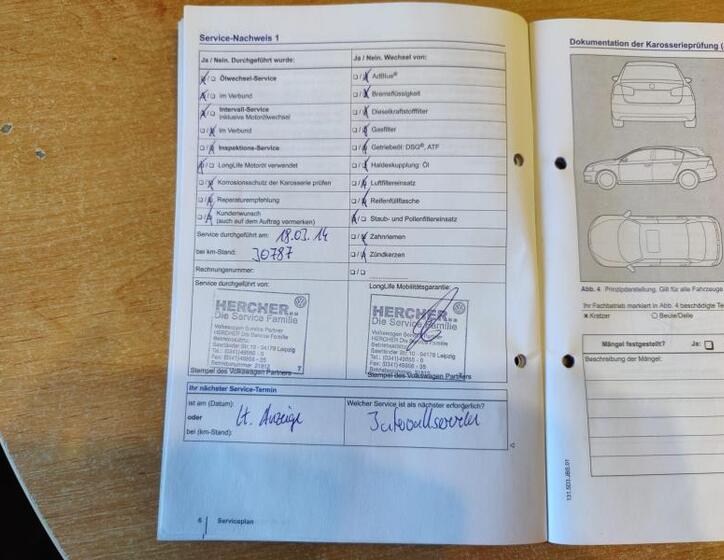 Service-Nachweis 1
Ja / Nein. Durchgeführt wurde:
Ja / Nein. Wechsel von:
Ölwechsel-Service
AdBlue®
im Verbund
Bremsflüssigkeit
Intervall-Service
inklusive Motorölwechsel
Dieselkraftstofffilter
im Verbund
Gasfilter
Inspektions-Service
Getriebeöl: DSG®, ATF
LongLife Motoröl verwendet
Haldexkupplung: Öl
Korrosionsschutz der Karosserie prüfen
Luftfiltereinsatz
Reparaturempfehlung
Reifenfüllflasche
Kundenwunsch
(auch auf dem Auftrag vermerken)
Staub- und Pollenfiltereinsatz
Service durchgeführt am: 18.03.14
Zahnriemen
bei km-Stand: 30787
Zündkerzen
Rechnungsnummer:
Service durchgeführt von:
LongLife Mobilitätsgarantie:
HERCHER
Die Service Familie
Volkswagen Service Partner
HERCHER Die Service Familie
Betriebsstätte:
Saarländer Str. 10 - 04179 Leipzig
Stempel des Volkswagen Partners
HERCHER
Die Service Familie
Volkswagen Service Partner
HERCHER Die Service Familie
Saarländer Str. 10 - 04179 Leipzig
Stempel des Volkswagen Partners
Ihr nächster Service-Termin
ist am (Datum):
oder
bei (km-Stand):
lt. Anzeige
Welcher Service ist als nächster erforderlich?
Intervallservice
6 Serviceplan
Dokumentation der Karosserieprüfung
Abb. 4 Prinzipdarstellung. Gilt für alle Fahrzeuge
Ihr Fachbetrieb markiert in Abb. 4 beschädigte
Kratzer
Beule/Delle
Mängel festgestellt? Ja:
Beschreibung der Mängel: